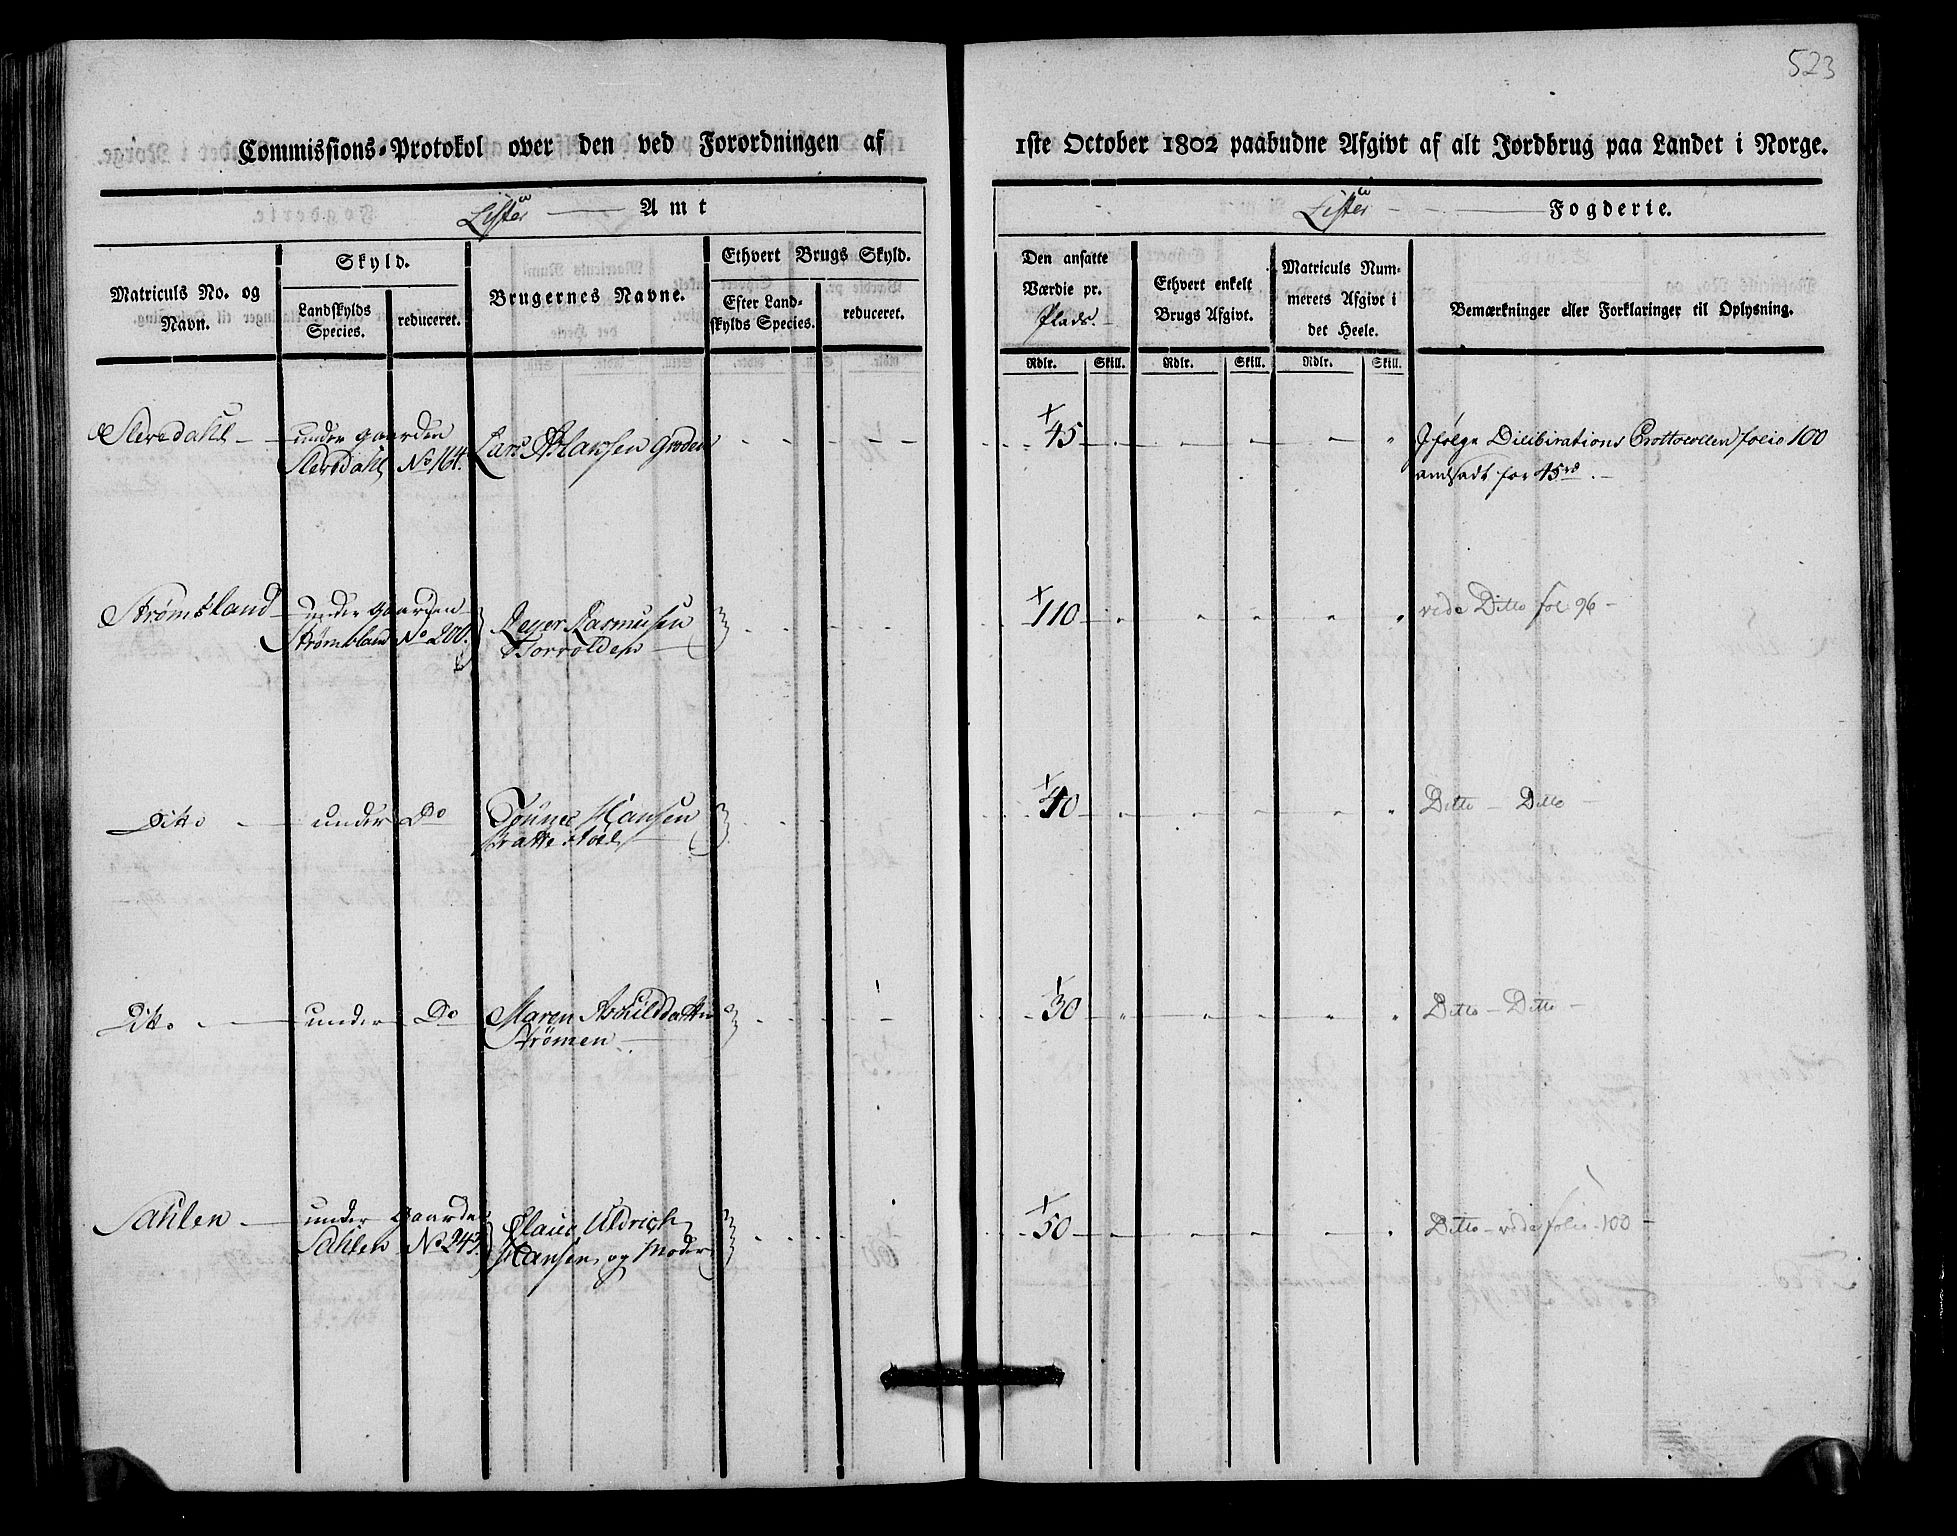 523
Commissions-Protokol over den ved Forordningen af 1ste October 1802 paabudne Afgivt af alt Jordbrug paa Landet i Norge.
Lister Amt
Lister Fogderie.
Matriculs No. og Navn.
Skyld.
Landskylds Species.
reduceret.
Brugernes Navne.
Ethvert Brugs Skyld.
Efter Landskylds Species.
reduceret.
Den ansatte Værdie pr. Plads.
Ethvert enkelt Brugs Afgivt.
Matriculs Nummerets Afgivt i det Heele.
Bemærkninger eller Forklaringer til Oplysning.
Rdlr. Skill. Rdlr. Skill. Rdlr. Skill.
under Gaarden No 164. Lars 45 Ifølge Dilibirations Prottocollen folio 100
andsadt for 45 rd
Strømsland under Gaarden No 200. Rasmusen 110 vide Ditto fol 96
Ditto under Do Tønnes Hansen 40 Ditto Ditto
Ditto under Do Maren 30 Ditto Ditto
Strømen
Sahlen under Gaarden Uldrich 50 Ditto vide folio 100
Sahlen No 243. Hansen og Moder